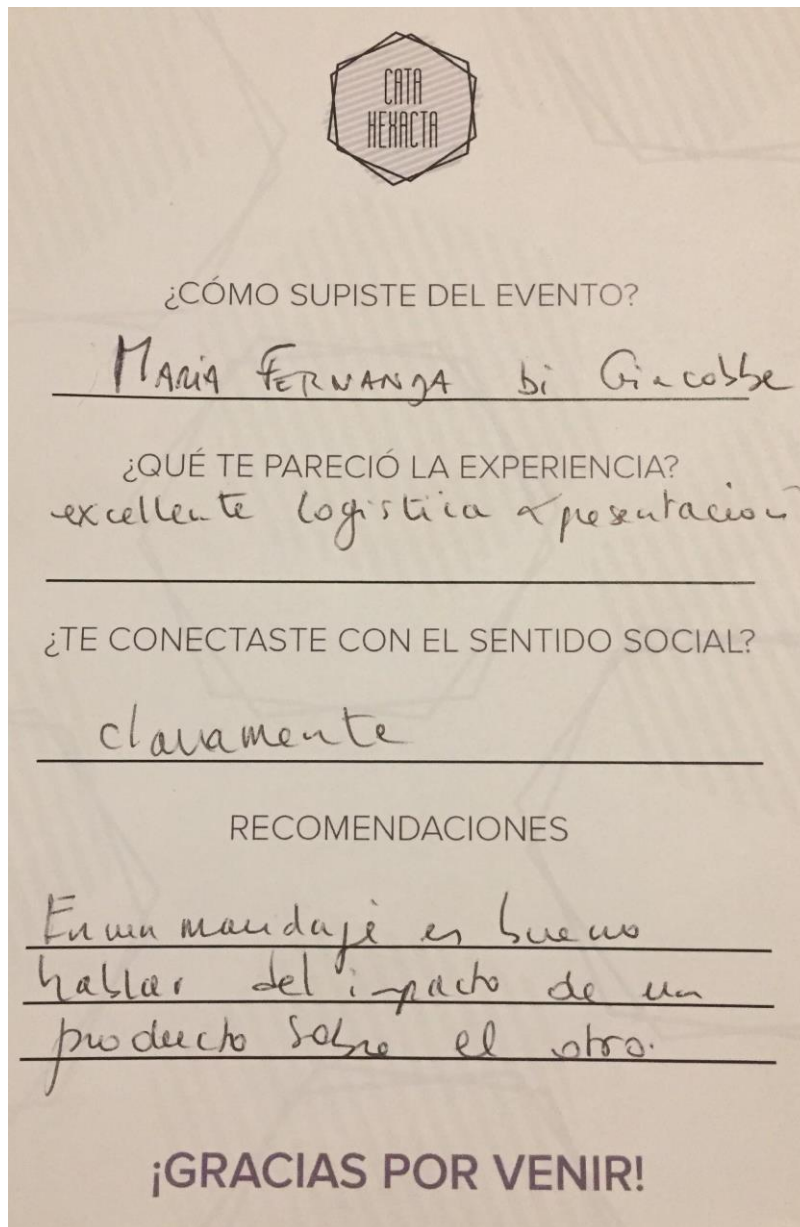 CATA
HEXACTA
¿CÓMO SUPISTE DEL EVENTO?
MARIA FERNANDA Di Giacobbe
¿QUÉ TE PARECIÓ LA EXPERIENCIA?
excellente logistica & presentación
¿TE CONECTASTE CON EL SENTIDO SOCIAL?
claramente
RECOMENDACIONES
En un maridaje es bueno
hablar del impacto de un
producto sobre el otro.
¡GRACIAS POR VENIR!